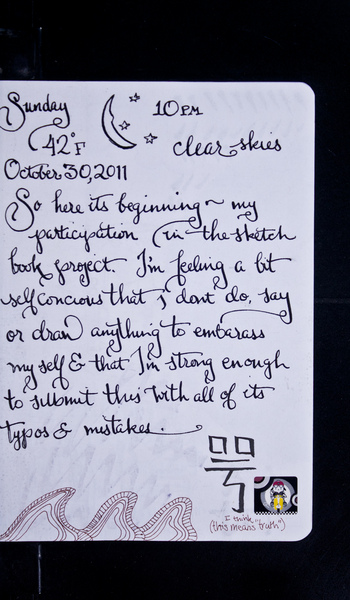 Sunday 10PM
42°F clear skies
October 30, 2011
So here its beginning ~ my
participation (in the sketch
book project. I'm feeling a bit
self concious that i dont do, say
or draw anything to embarass
my self & that I'm strong enough
to submit this with all of its
typos & mistakes.
I think
(this means "truth")